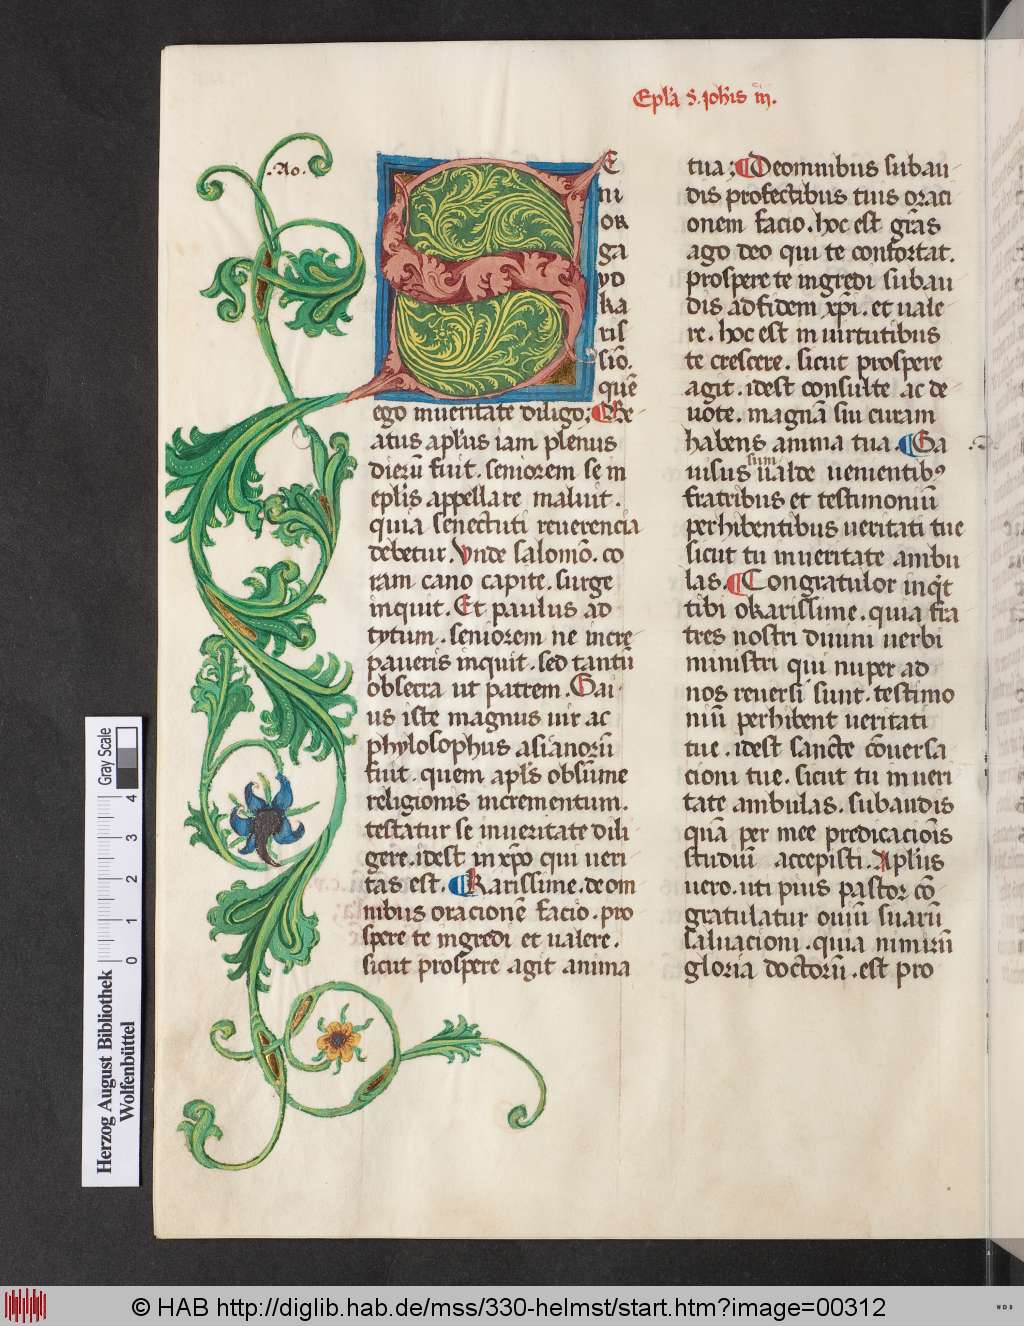 Epl̄a s. ioh̄is iij.
.Ao.
SE
ni
or
ga
yo
ka
ris
sio᷑.
quē
ego in ueritate diligo; ¶ Be
atus apl̄us iam plenus
dierū fuit . seniorem se in
epl̄is appellare maluit .
quia senectuti reuerencia
debetur . Vnde salomō . co
ram cano capite . surge
inquit . Et paulus ad
tytum . seniorem ne incre
paueris inquit . sed tantū
obsecra ut patrem . Gai
us iste magnus uir ac
phylosophus asianorū
fuit . quem apl̄s obsūme
religionis incrementum .
testatur se in ueritate dili
gere . idest in xp̄o qui ueri
tas est . ¶ Karissime . de om
nibus oracionē facio . pro
spere te ingredi et ualere .
sicut prospere agit anima
tua ; ¶ De omnibus subau
dis profectibus tuis oraci
onem facio . hoc est grās
ago deo qui te confortat .
prospere te ingredi subau
dis ad fidem xp̄i . et uale
re . hoc est in uirtutibus
te crescere . sicut prospere
agit . idest consulte ac de
uote . magnā siu curam
habens anima tua . ¶ Ga
uisus sum ualde uenientibꝰ
fratribus et testimoniū
perhibentibus ueritati tue
sicut tu in ueritate ambu
las . ¶ Congratulor inqͥt
tibi o karissime . quia fra
tres nostri diuini uerbi
ministri qui nuper ad
nos reuersi sunt . testimo
niū perhibent ueritati
tue . idest sancte cōuersa
cioni tue . sicut tu in ueri
tate ambulas . subaudis
quā per mee predicacōis
studiū accepisti . Apl̄us
uero . uti pius pastor cō
gratulatur ouiū suarū
saluacioni . quia nimirū
gloria doctorū . est pro
Gray Scale
0 1 2 3 4
Herzog August Bibliothek
Wolfenbüttel
© HAB http://diglib.hab.de/mss/330-helmst/start.htm?image=00312